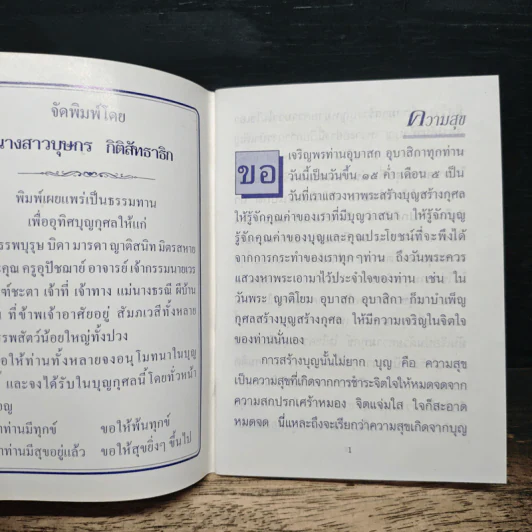 จัดพิมพ์โดย
นางสาวบุษกร กิติสัทธาธิก
พิมพ์เผยแพร่เป็นธรรมทาน
เพื่ออุทิศบุญกุศลให้แก่
รรพบุรุษ บิดา มารดา ญาติสนิท มิตรสหาย
คุณ ครูอุปัชฌาย์ อาจารย์ เจ้ากรรมนายเวร
เจ้าที่ เจ้าทาง แม่นางธรณี ผีบ้าน
ที่ข้าพเจ้าอาศัยอยู่ สัมภเวสีทั้งหลาย
รพสัตว์น้อยใหญ่ทั้งปวง
อให้ท่านทั้งหลายจงอนุโมทนาในบุญ
และจงได้รับในบุญกุศลนี้โดยทั่วหน้า
าท่านมีทุกข์ ขอให้พ้นทุกข์
าท่านมีสุขอยู่แล้ว ขอให้สุขยิ่งๆ ขึ้นไป
ความสุข
ขอ เจริญพรท่านอุบาสก อุบาสิกาทุกท่าน
วันนี้เป็นวันขึ้น ๑๕ ค่ำ เดือน ๕ เป็น
วันที่เราแสวงหาพระสร้างบุญสร้างกุศล
ให้รู้จักคุณค่าของเราที่มีบุญวาสนา ให้รู้จักบุญ
รู้จักคุณค่าของบุญและคุณประโยชน์ที่จะพึงได้
จากการกระทำของเราทุกๆท่าน ถึงวันพระควร
แสวงหาพระเอามาไว้ประจำใจของท่าน เช่น ใน
วันพระ ญาติโยม อุบาสก อุบาสิกา ก็มาบำเพ็ญ
กุศลสร้างบุญสร้างกุศล ให้มีความเจริญในจิตใจ
ของท่านนั่นเอง
การสร้างบุญนั้นไม่ยาก บุญ คือ ความสุข
เป็นความสุขที่เกิดจากการชำระจิตใจให้หมดจดจาก
ความสกปรกเศร้าหมอง จิตแจ่มใส ใจก็สะอาด
หมดจด นี่แหละถึงจะเรียกว่าความสุขเกิดจากบุญ
1